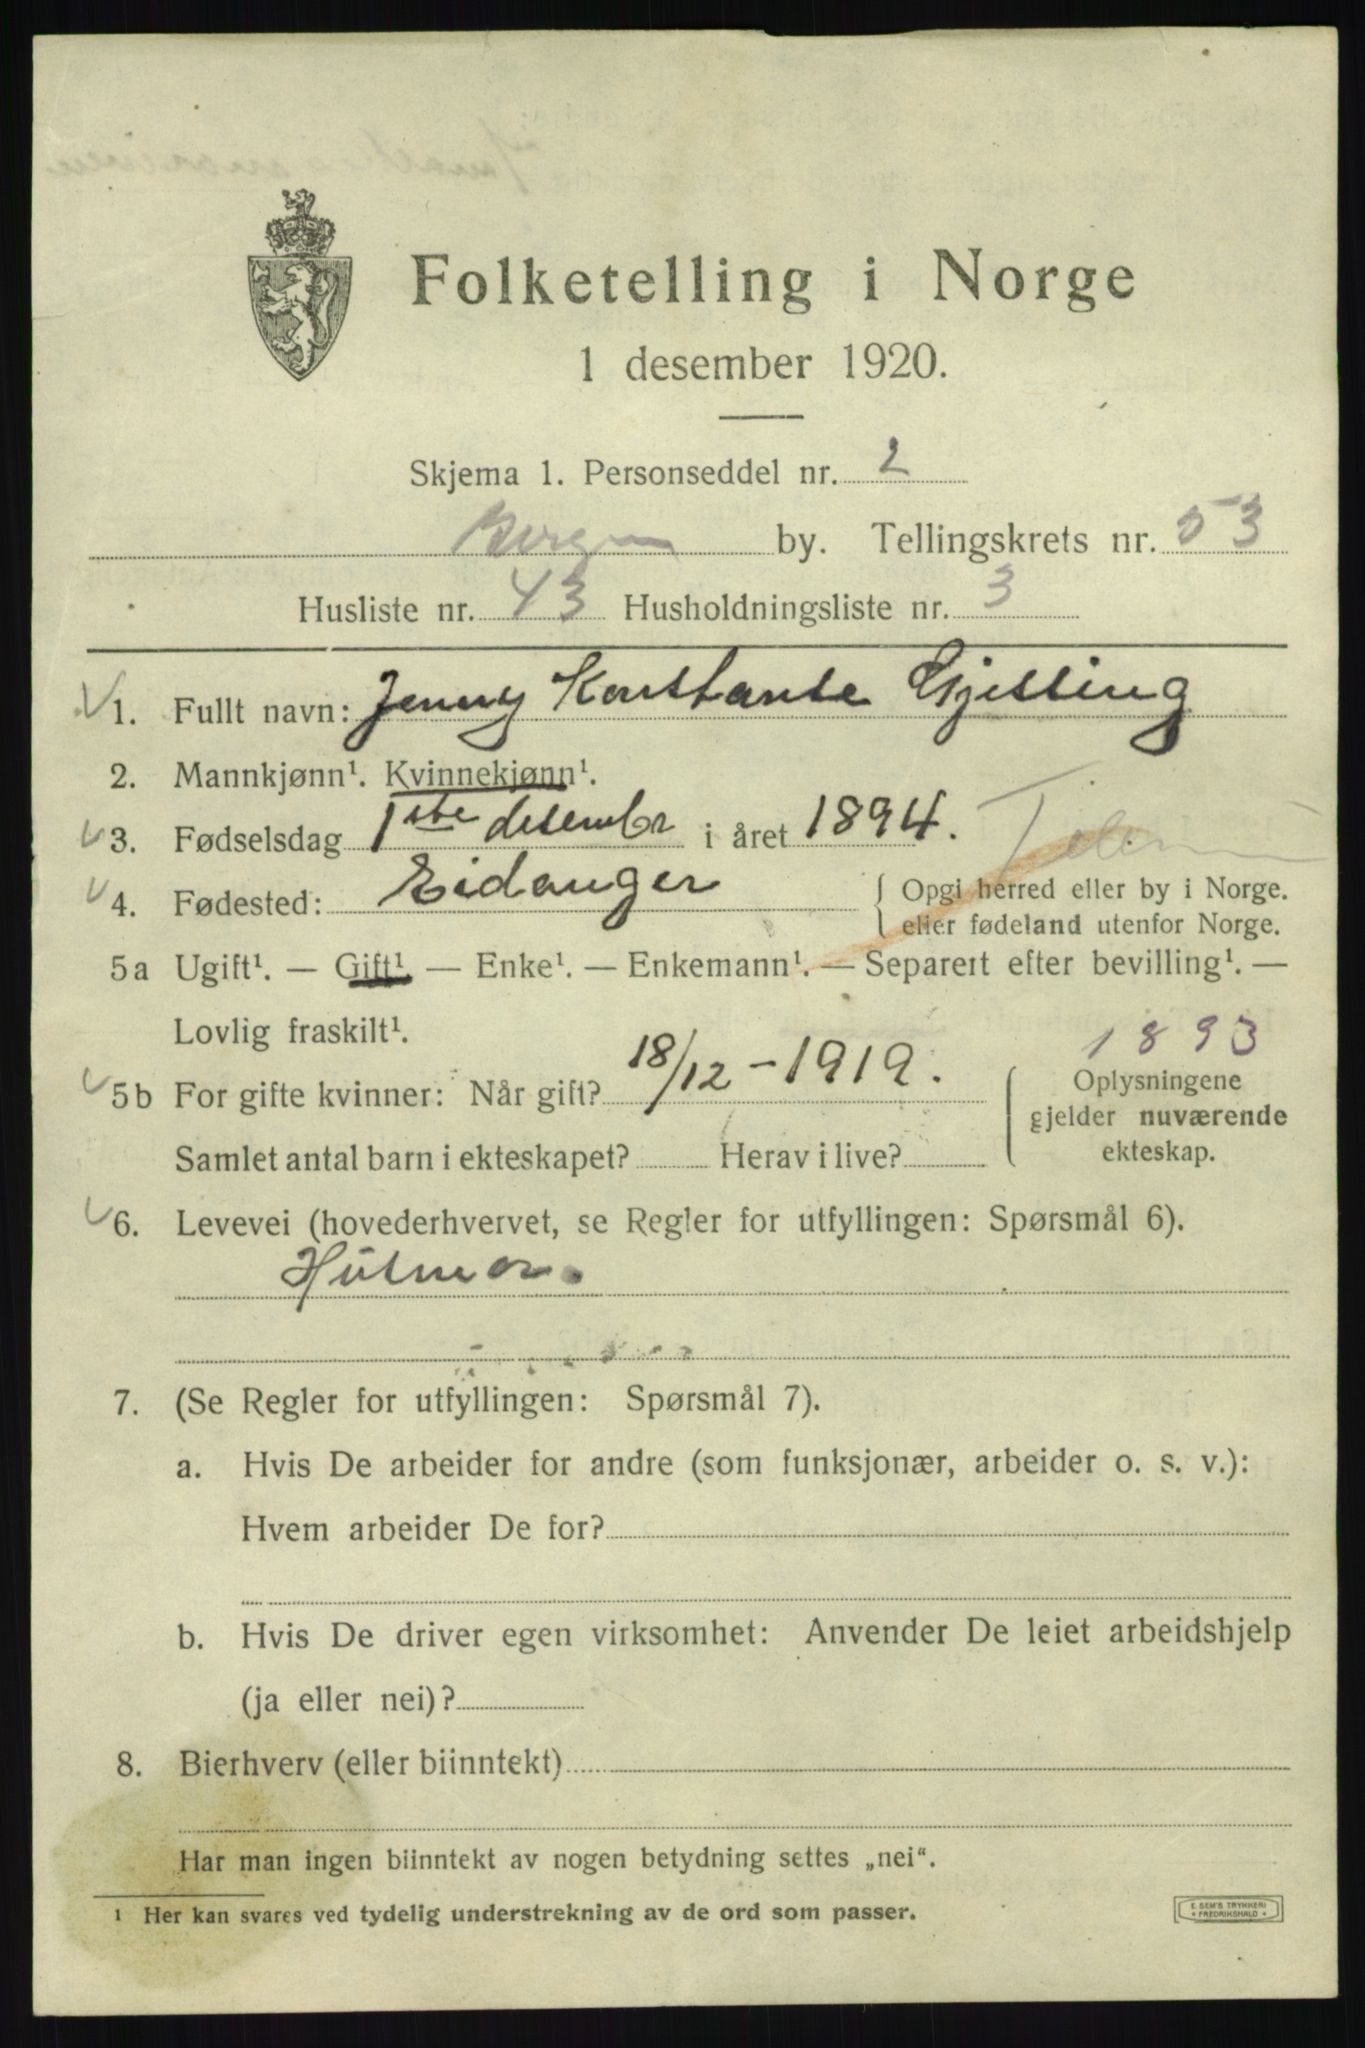 Folketelling i Norge
1 desember 1920.
Skjema 1. Personseddel nr. 2
Bergen by. Tellingskrets nr. 53
Husliste nr. 43 Husholdningsliste nr. 3
1. Fullt navn: Jenny Konstanse Gjelling
2. Mannkjønn¹. Kvinnekjønn¹.
3. Fødselsdag 1ste desember i året 1894.
4. Fødested: Eidanger { Opgi herred eller by i Norge.
eller fødeland utenfor Norge.
5a Ugift¹. — Gift¹ — Enke¹. — Enkemann¹. — Separert efter bevilling¹. —
Lovlig fraskilt¹.
1893
5b For gifte kvinner: Når gift? 18/12 - 1919. Oplysningene
gjelder nuværende
ekteskap.
Samlet antal barn i ekteskapet? Herav i live?
6. Levevei (hovederhvervet, se Regler for utfyllingen: Spørsmål 6).
Husmor.
7. (Se Regler for utfyllingen: Spørsmål 7).
a. Hvis De arbeider for andre (som funksjonær, arbeider o. s. v.):
Hvem arbeider De for?
b. Hvis De driver egen virksomhet: Anvender De leiet arbeidshjelp
(ja eller nei)?
8. Bierhverv (eller biinntekt)
Har man ingen biinntekt av nogen betydning settes „nei“.
¹ Her kan svares ved tydelig understrekning av de ord som passer.
E. SEM'S TRYKKERI
* FREDRIKSHALD *